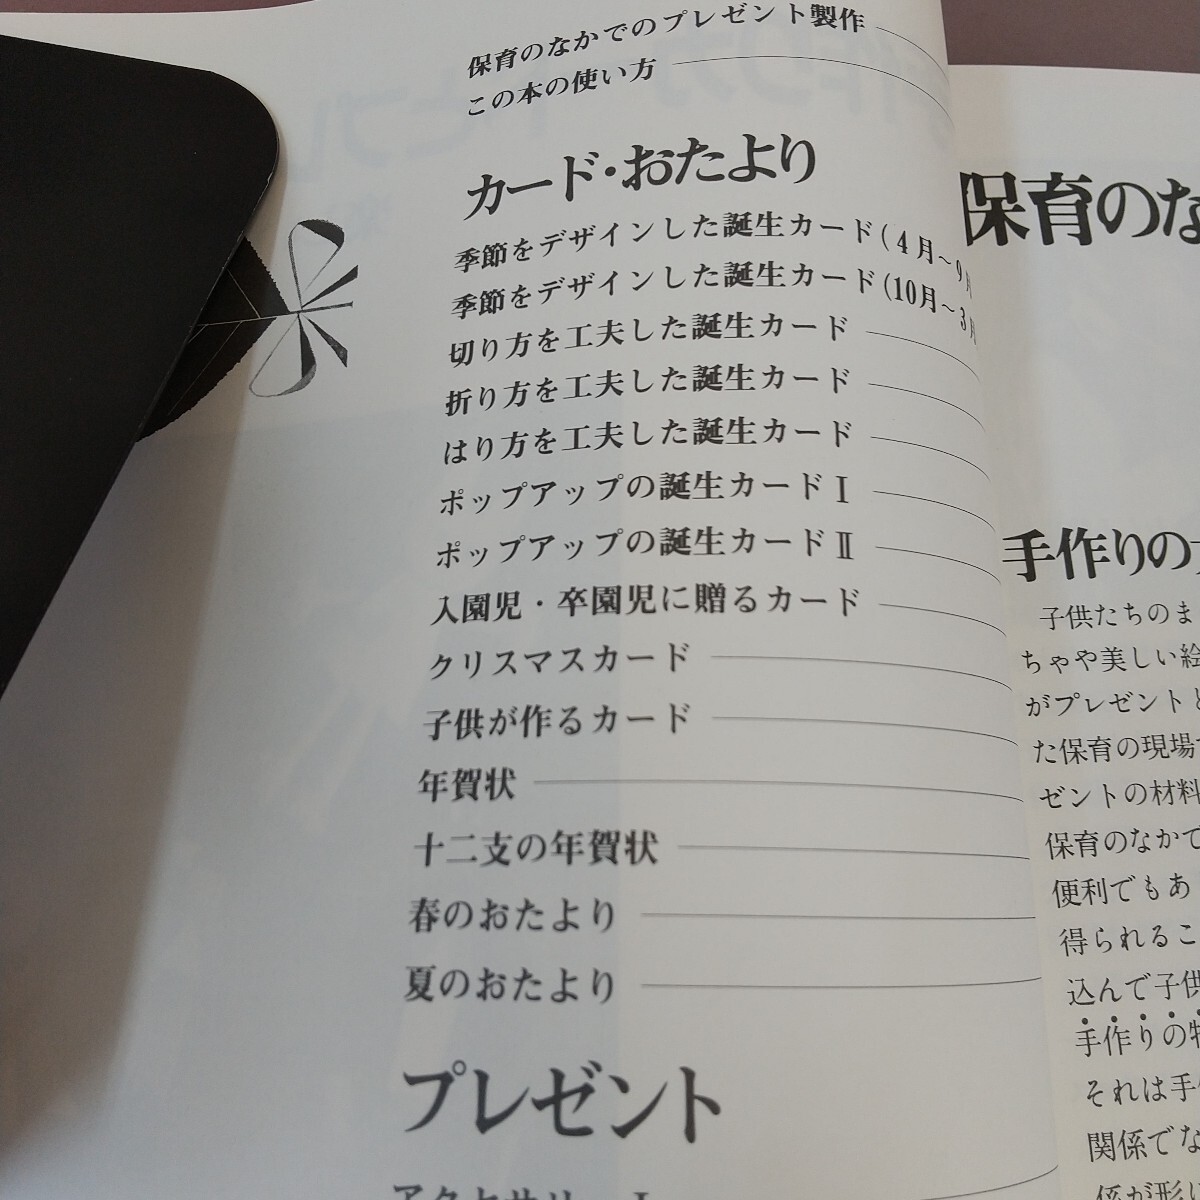 保育のなかでのプレゼント製作
この本の使い方
カード・おたより
季節をデザインした誕生カード(4月〜9月
季節をデザインした誕生カード(10月〜3月
切り方を工夫した誕生カード
折り方を工夫した誕生カード
はり方を工夫した誕生カード
ポップアップの誕生カードⅠ
ポップアップの誕生カードⅡ
入園児・卒園児に贈るカード
クリスマスカード
子供が作るカード
年賀状
十二支の年賀状
春のおたより
夏のおたより
プレゼント
保育のな
手作りの
子供たちのま
ちゃや美しい絵
がプレゼントと
た保育の現場
ゼントの材料
保育のなかで
便利でもあ
得られるこ
込んで子供
手作りの特
それは手作
関係でな
係が形に